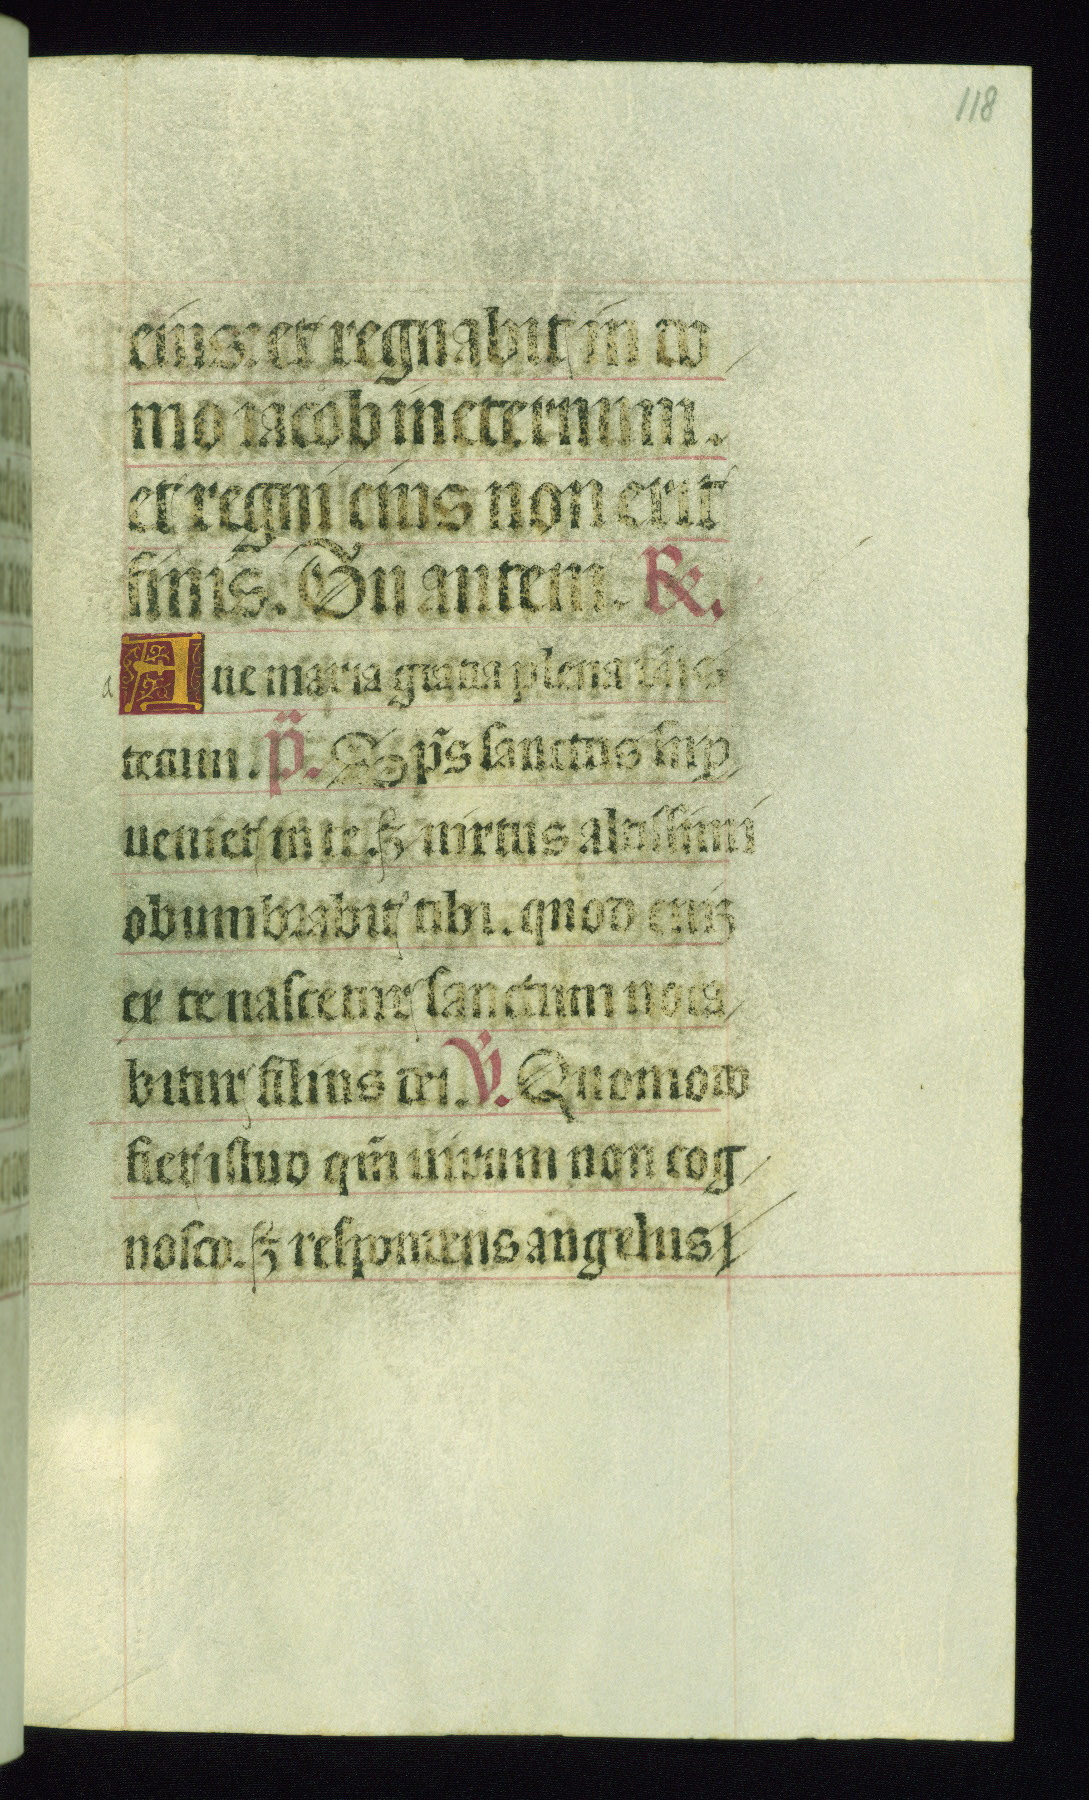 118
eius: et regnabit in do
mo iacob in eternum.
et regni eius non erit
finis. Tu autem. R.
a
Aue maria gratia plena dñs
tecum. p̈. S p̄s sanctus sup
ueniet in te. ⁊ uirtus altissimi
obumbrabit tibi. quod eniʒ
ex te nascetur sanctum uoca
bitur filius dei. V. Quomodo
fiet istud qm̄ uirum non cog
nosco. ⁊ respondens angelus